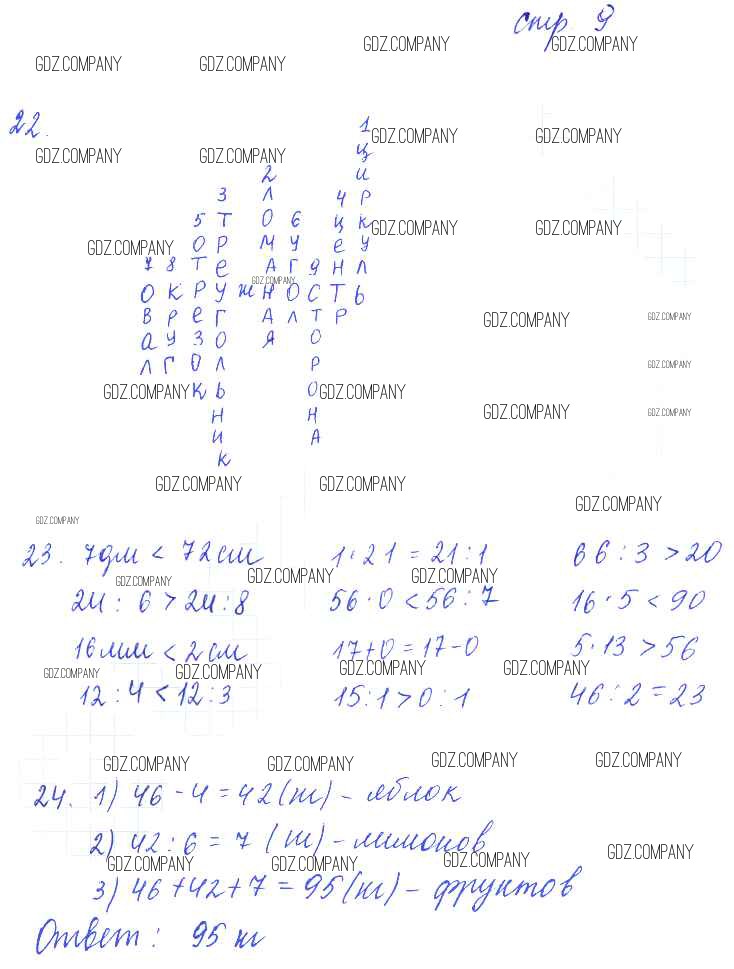 стр 9
GDZ.COMPANY GDZ.COMPANY
GDZ.COMPANY GDZ.COMPANY
22.
GDZ.COMPANY GDZ.COMPANY GDZ.COMPANY GDZ.COMPANY
1 ЦИРКУЛЬ
2 ЛОМАНАЯ
3 ТРЕУГОЛЬНИК
4 ЦЕНТР
5 ОТРЕЗОК
6 УГОЛ
7 ОВАЛ
8 КРУГ
9 СТОРОНА
ОКРУЖНОСТЬ
GDZ.COMPANY GDZ.COMPANY GDZ.COMPANY
GDZ.COMPANY
GDZ.COMPANY GDZ.COMPANY
GDZ.COMPANY
GDZ.COMPANY GDZ.COMPANY GDZ.COMPANY GDZ.COMPANY
GDZ.COMPANY GDZ.COMPANY
GDZ.COMPANY
GDZ.COMPANY
23. 7дм < 72см 1·21 = 21:1 66:3 > 20
GDZ.COMPANY GDZ.COMPANY GDZ.COMPANY
24:6 > 24:8 56·0 < 56:7 16·5 < 90
16мм < 2см 17+0 = 17-0 5·13 > 56
GDZ.COMPANY GDZ.COMPANY GDZ.COMPANY GDZ.COMPANY
12:4 < 12:3 15:1 > 0:1 46:2 = 23
GDZ.COMPANY GDZ.COMPANY GDZ.COMPANY GDZ.COMPANY
24. 1) 46 - 4 = 42 (кг) - яблок
2) 42:6 = 7 (кг) - лимонов
GDZ.COMPANY GDZ.COMPANY GDZ.COMPANY GDZ.COMPANY
3) 46+42+7 = 95 (кг) - фруктов
Ответ: 95 кг